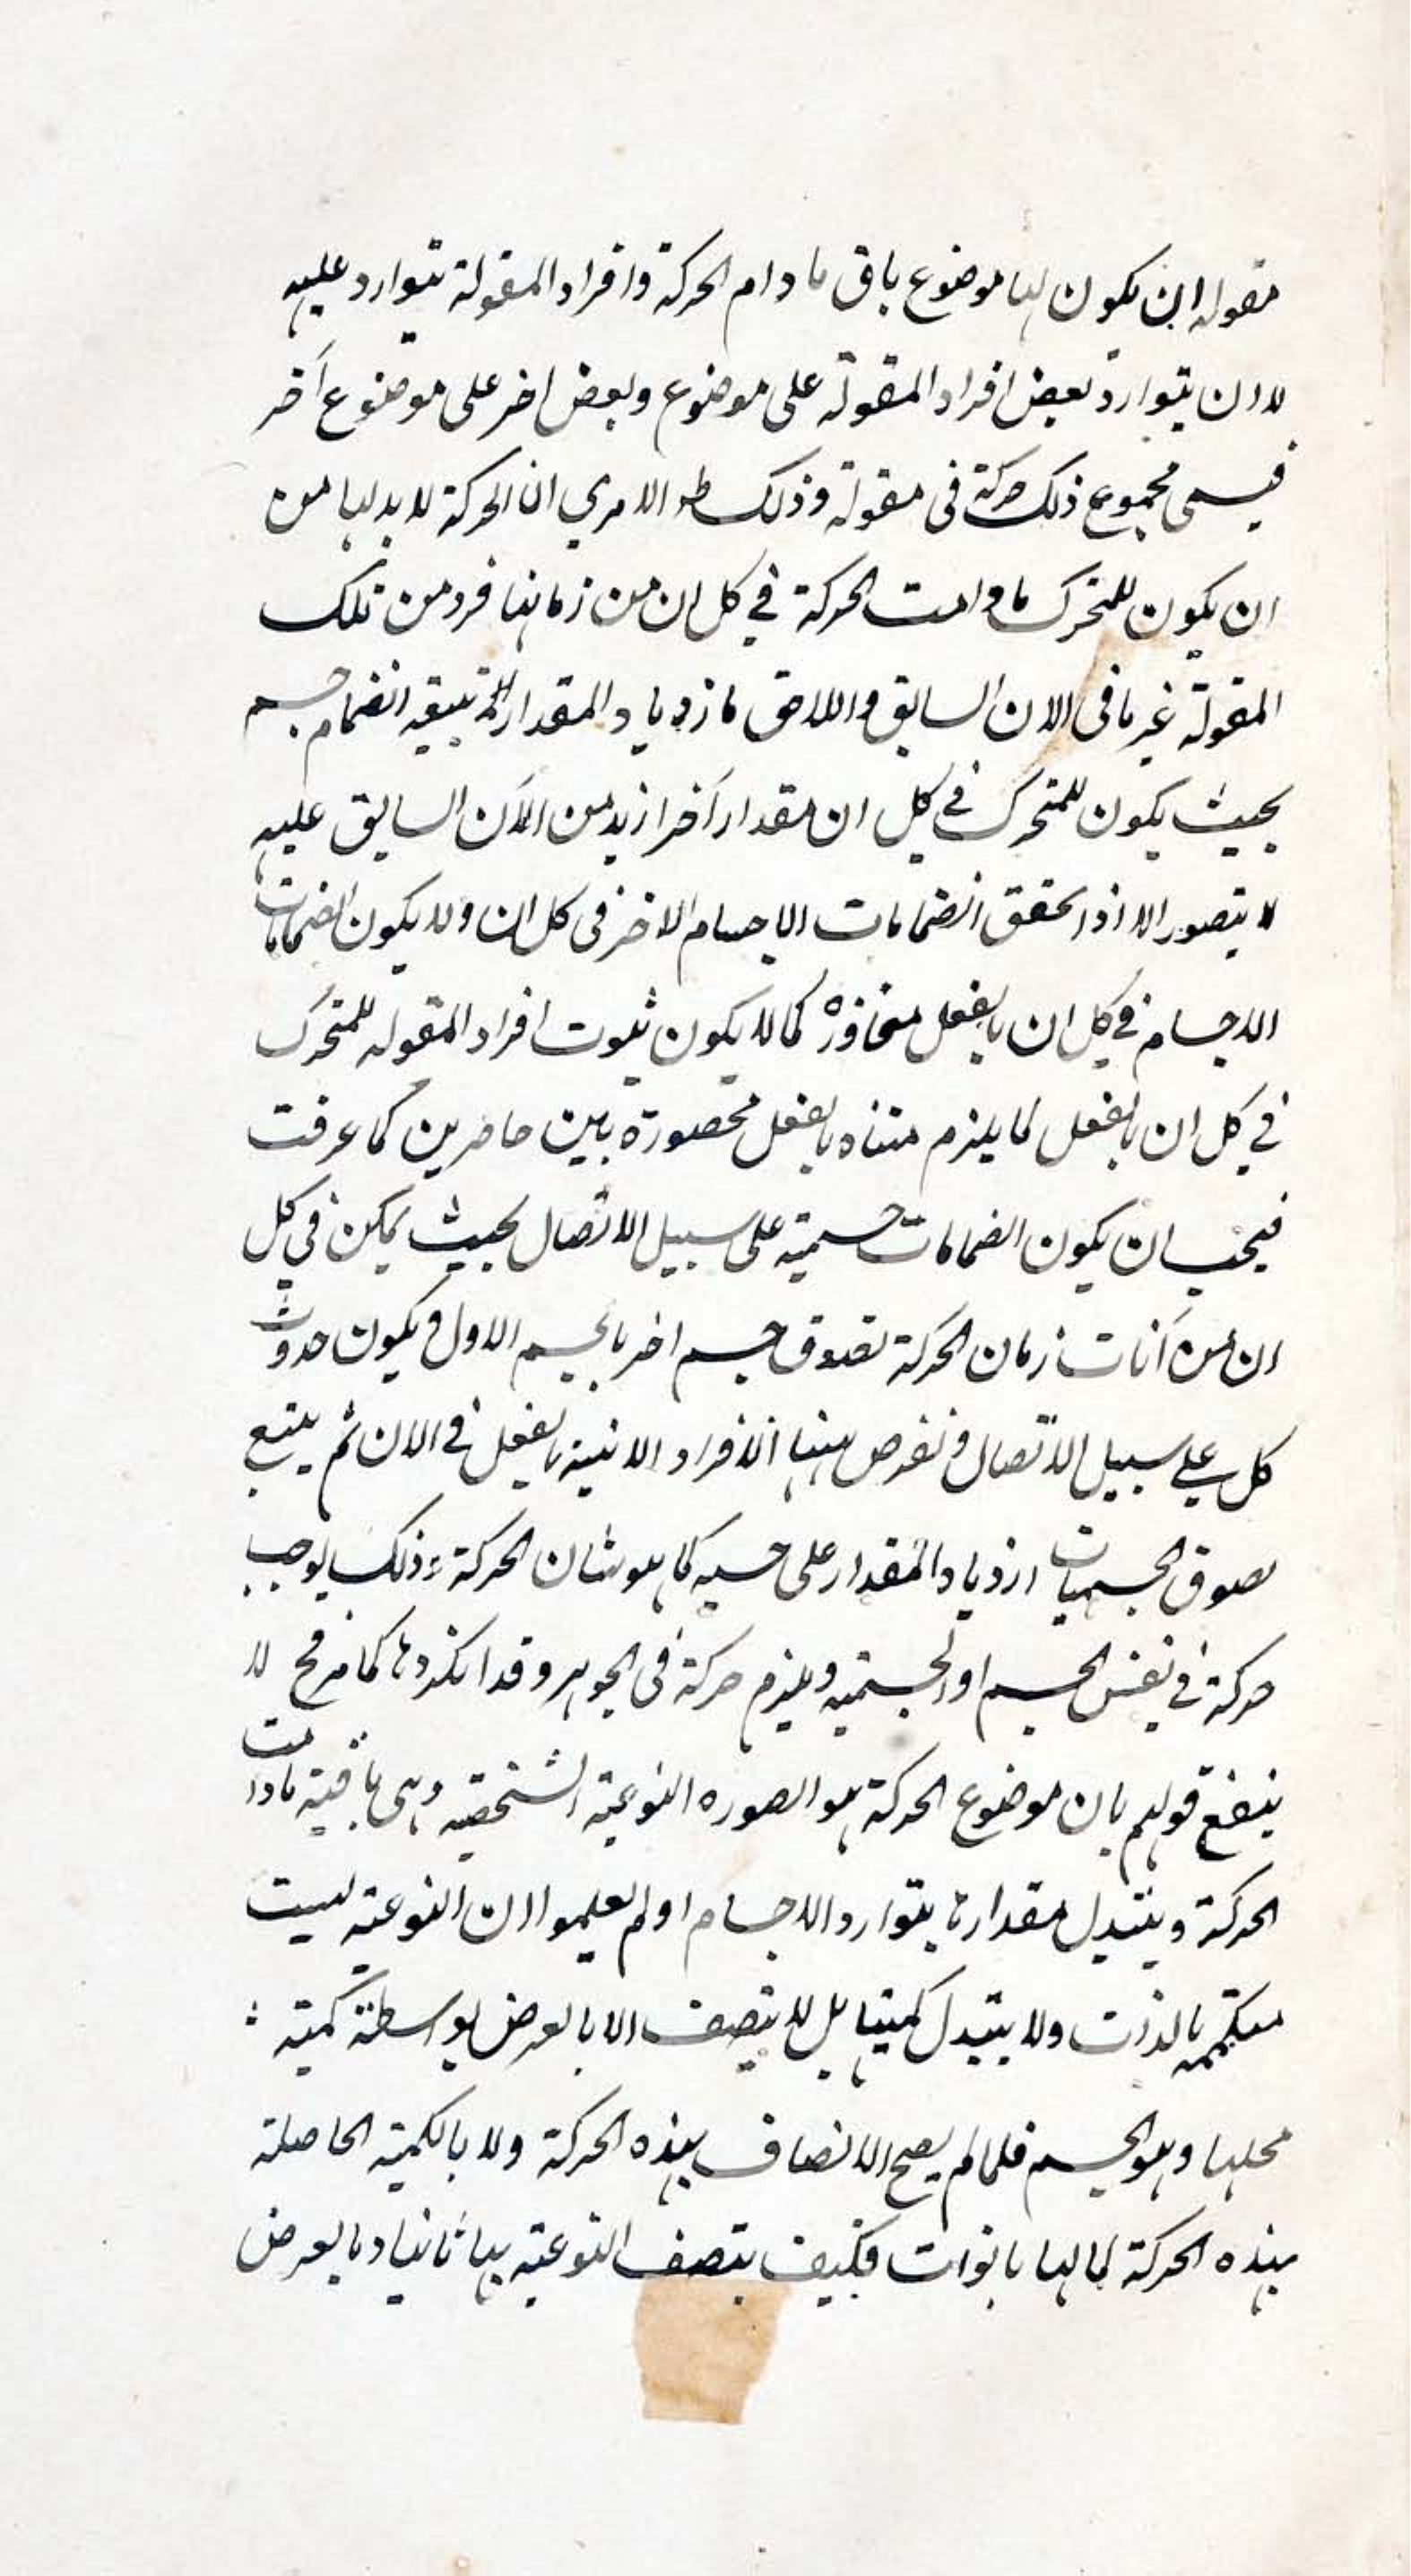 مقولة ان يكون لها موضوع باق ما دام الحركة وافراد المقولة تتوارد عليه
لا ان يتوارد بعض افراد المقولة على موضوع وبعض اخر على موضوع آخر
فيسمى مجموع ذلك حركة فى مقولة وذلك لان الحركة لا بد لها من
ان يكون للمتحرك ما دامت الحركة في كل ان من زمانها فرد من تلك
المقولة غير ما فى الان السابق واللاحق فازدياد المقدار انضمام جسم
بحيث يكون للمتحرك في كل ان مقدار آخر ازيد من الآن السابق عليه
لا يتصور الا اذا تحقق انضمامات الاجسام الاخر فى كل ان ولا يكون انضمامات
الاجسام في كل ان بالفعل كما لا يكون ثبوت افراد المقولة للمتحرك
في كل ان بالفعل لما يلزم متناه بالفعل محصورة بين حاصرين كما عرفت
فيجب ان يكون انضمامات جسمية على سبيل الاتصال بحيث يمكن في كل
ان من آنات زمان الحركة لصوق جسم اخر بالجسم الاول ويكون حدوث
كل على سبيل الاتصال ونفرض منها الافراد الانية بالفعل في الان ثم يتبع
لصوق الجسميات ازدياد المقدار على حسبه كما هو شان الحركة وذلك يوجب
حركة في نفس الجسم او الجسمية ويلزم حركة فى الجوهر وقد انكروها كما مر فح لا
ينفع قولهم بان موضوع الحركة هو الصورة النوعية الشخصية وهى باقية ما دامت
الحركة ويتبدل مقدارها بتوارد الاجسام او لم يعلموا ان النوعية ليست
متكممة بالذات ولا يتبدل كميتها بل لا يتصف الا بالعرض بواسطة كمية
محلها وهو الجسم فلما لم يصح الاتصاف بهذه الحركة ولا بالكمية الحاصلة
بهذه الحركة لما لها بالذات فكيف يتصف النوعية بها ثانيا وبالعرض